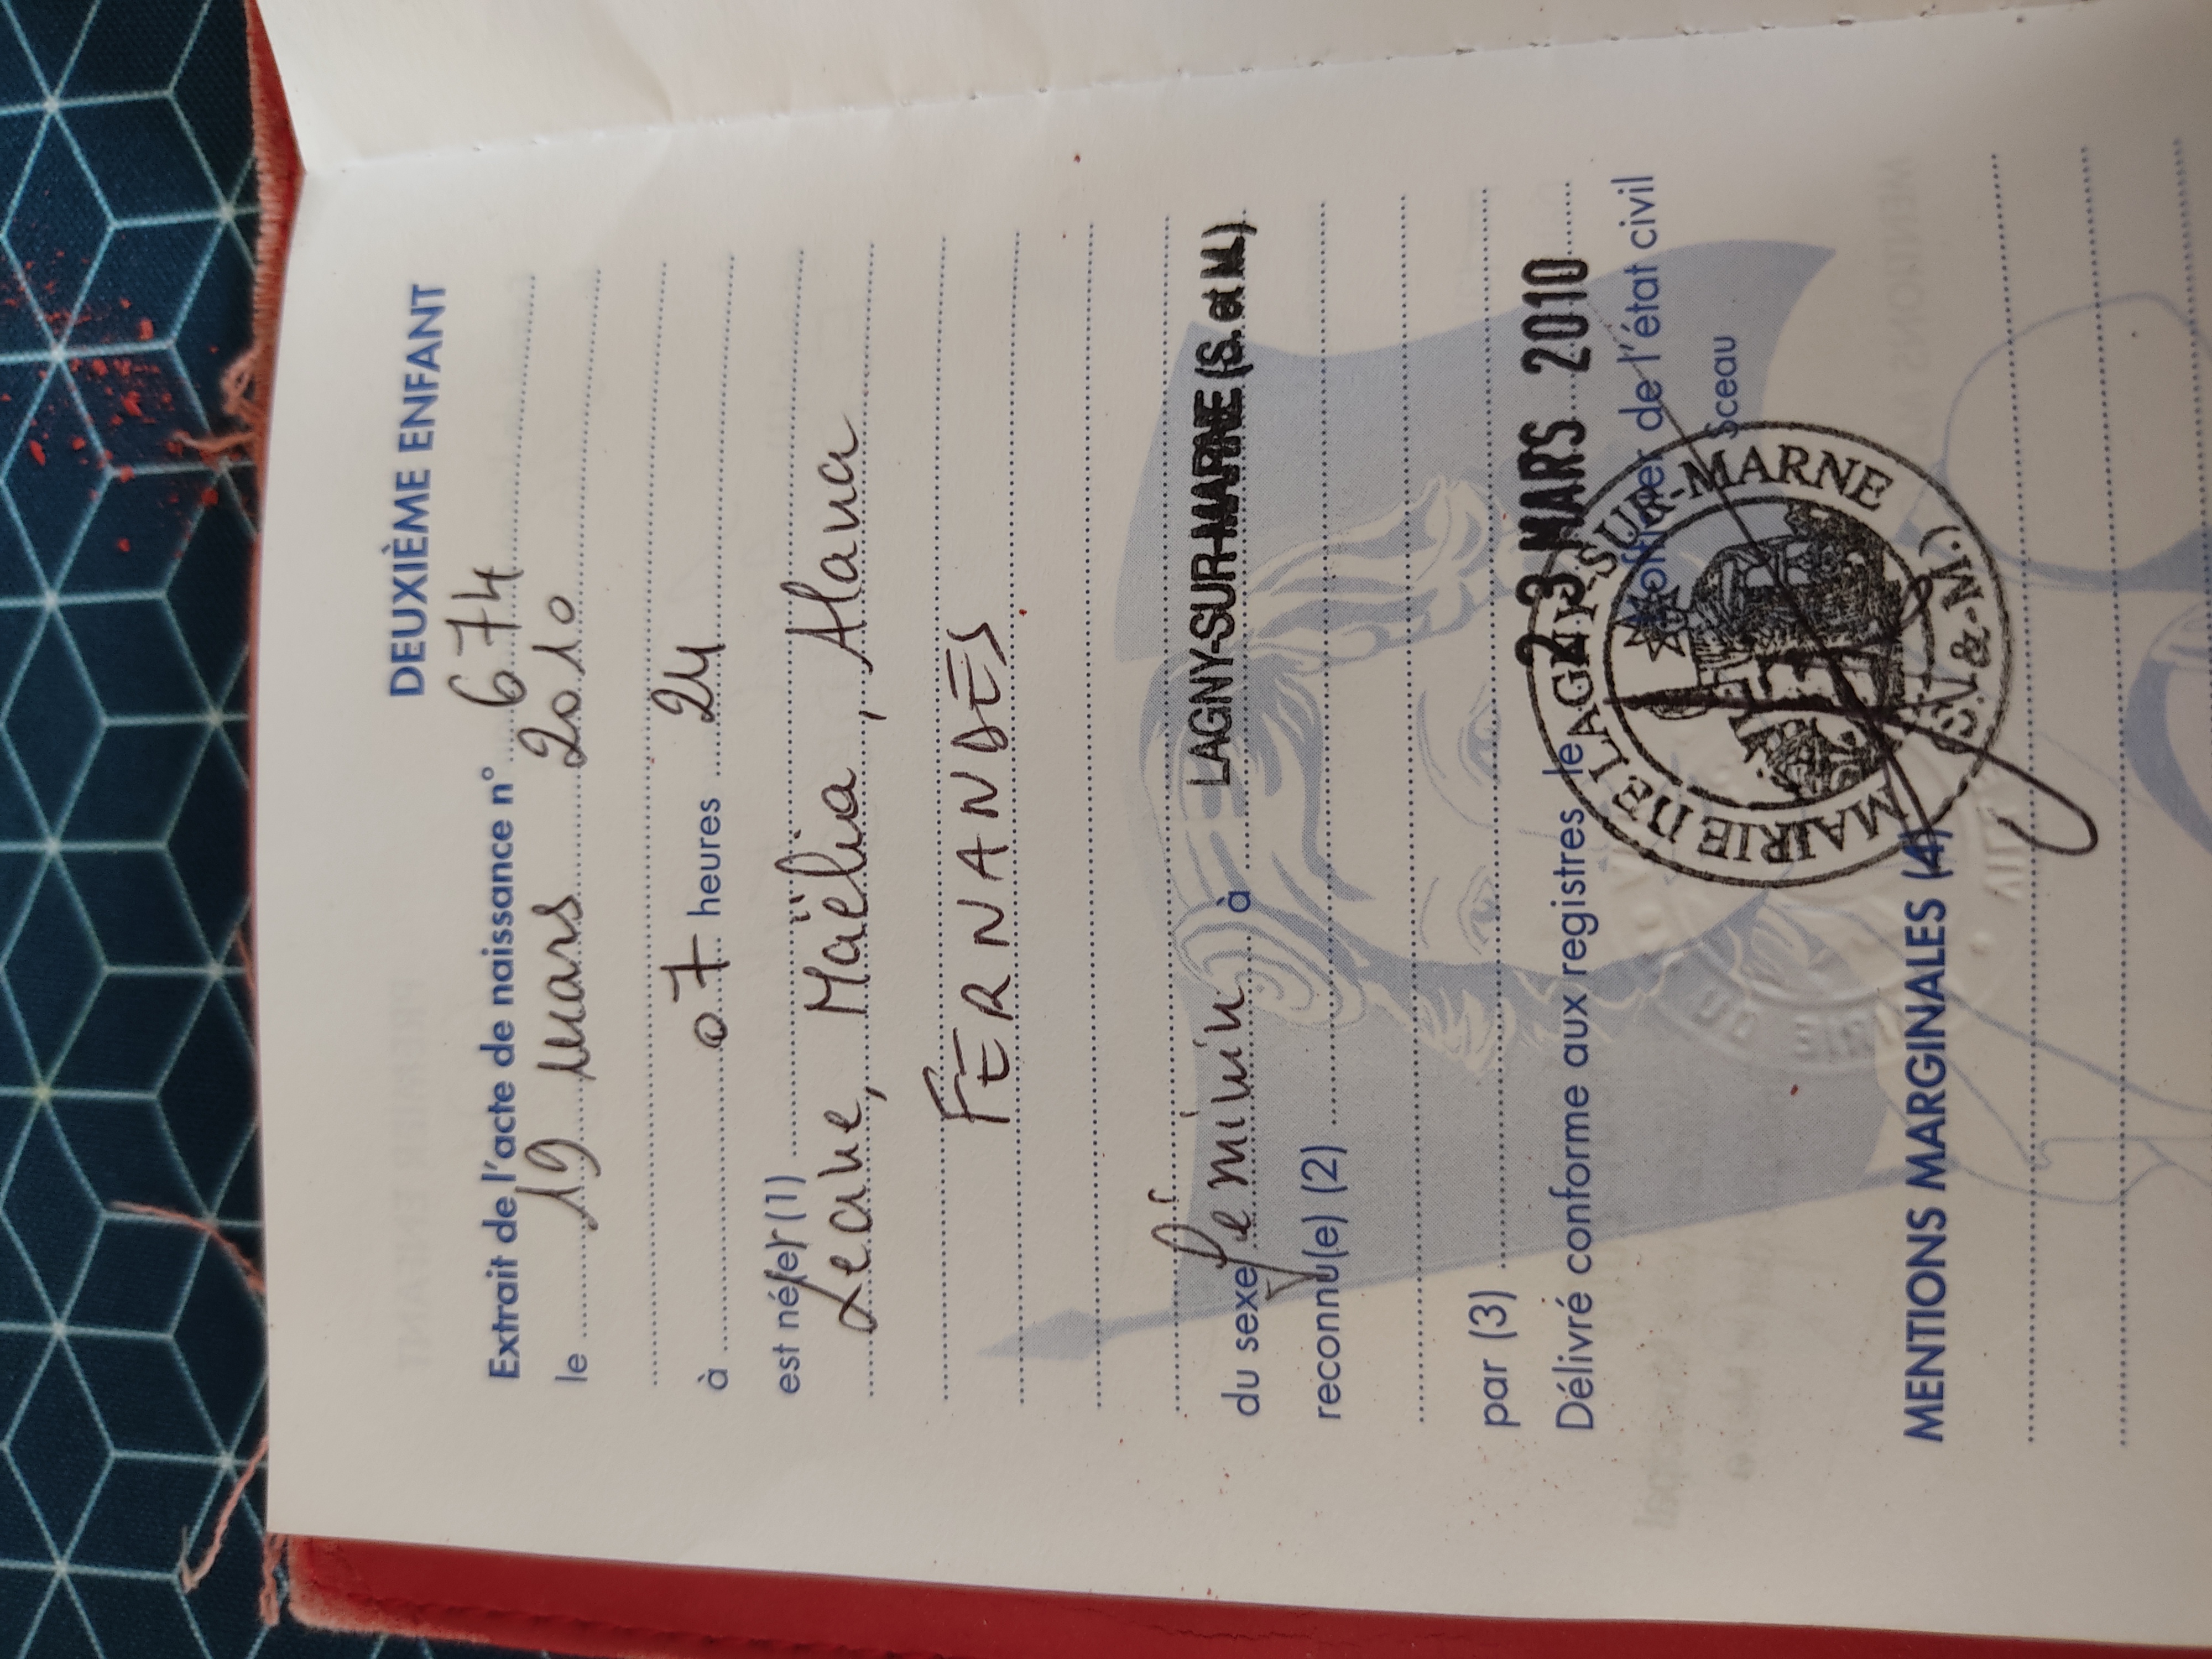 DEUXIÈME ENFANT
Extrait de l'acte de naissance n° 674
le 19 mars 2010
à 07 heures 24
est né(e) (1)
Leane, Maëlia, Alana
FERNANDES
du sexe féminin à LAGNY-SUR-MARNE (S. et M.)
reconnu(e) (2)
par (3)
Délivré conforme aux registres le 23 MARS 2010
L'officier de l'état civil
Sceau
MAIRIE DE LAGNY-SUR-MARNE
(S. & M.)
MENTIONS MARGINALES (4)